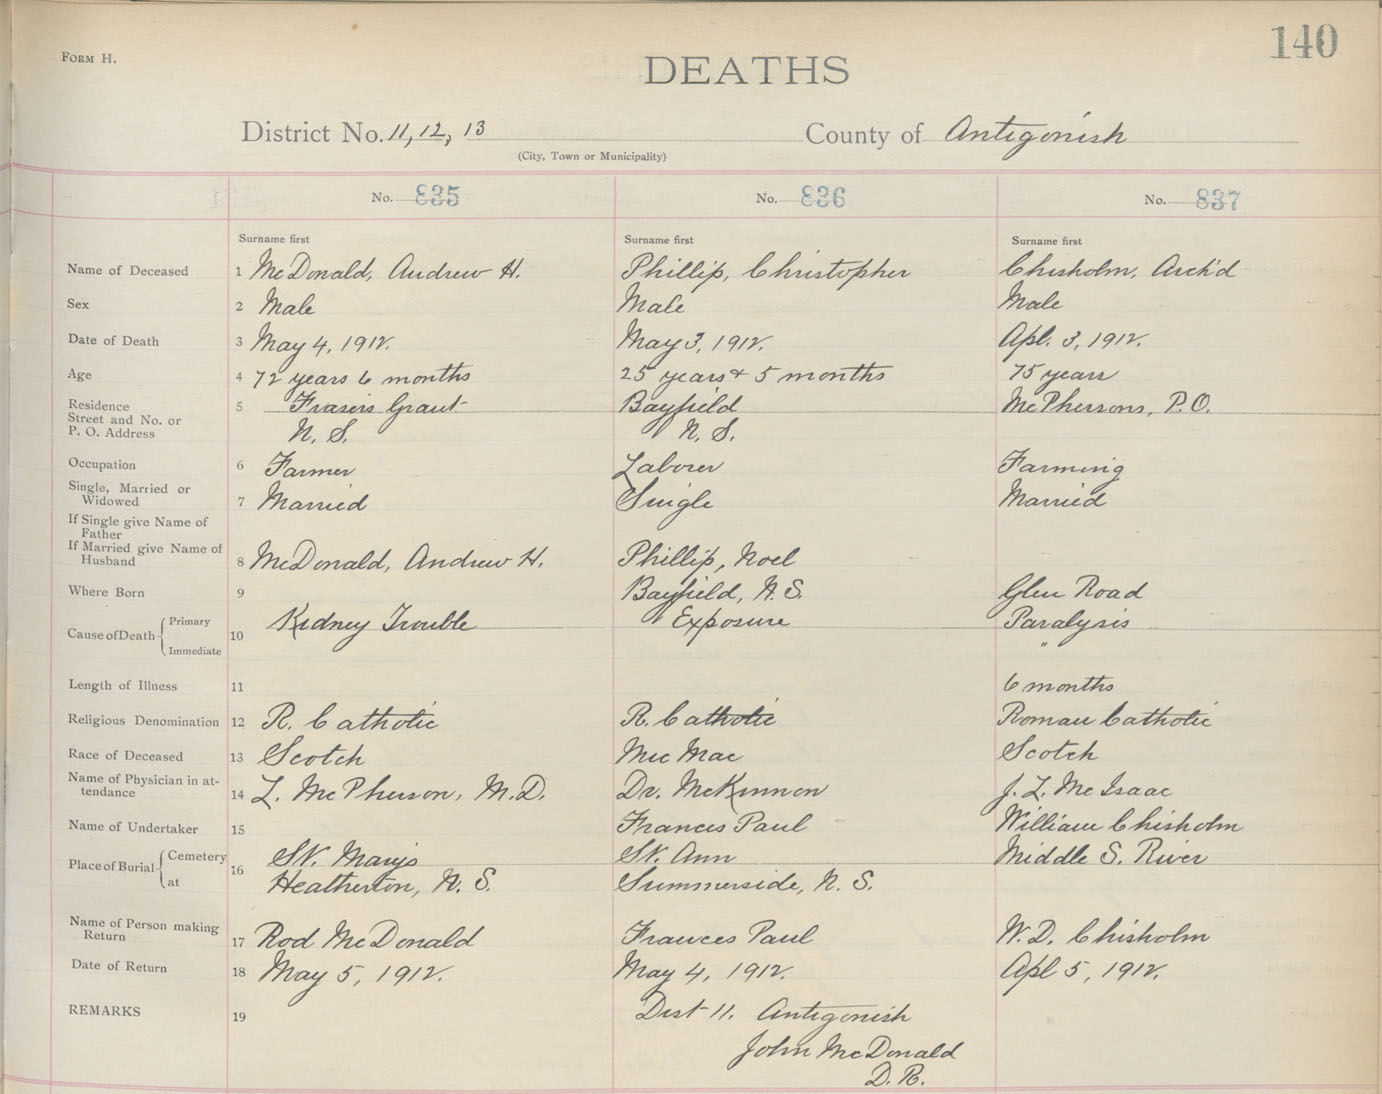 FORM H.
140
DEATHS
District No. 11, 12, 13
County of Antigonish
(City, Town or Municipality)
No. 835 No. 836 No. 837
Surname first Surname first Surname first
Name of Deceased 1 McDonald, Andrew H. Phillip, Christopher Chisholm, Arch'd
Sex 2 Male Male Male
Date of Death 3 May 4, 1912. May 3, 1912. Apl. 3, 1912.
Age 4 72 years 6 months 25 years + 5 months 75 years
Residence 5 Frasers Grant Bayfield McPhersons, P.O.
Street and No. or
P. O. Address N. S. N. S.
Occupation 6 Farmer Laborer Farming
Single, Married or
Widowed 7 Married Single Married
If Single give Name of
Father
If Married give Name of
Husband 8 McDonald, Andrew H. Phillip, Noel
Where Born 9 Bayfield, N. S. Glen Road
Cause of Death { Primary 10 Kidney Trouble Exposure Paralysis
Immediate "
Length of Illness 11 6 months
Religious Denomination 12 R. Catholic R. Catholic Roman Catholic
Race of Deceased 13 Scotch Mic Mac Scotch
Name of Physician in at-
tendance 14 L. McPherson, M.D. Dr. McKinnon J. L. McIsaac
Name of Undertaker 15 Frances Paul William Chisholm
Place of Burial { Cemetery 16 St. Marys St. Ann Middle S. River
at Heatherton, N. S. Summerside, N. S.
Name of Person making
Return 17 Rod McDonald Frances Paul W. D. Chisholm
Date of Return 18 May 5, 1912. May 4, 1912. Apl 5, 1912.
REMARKS 19 Dist 11. Antigonish
John McDonald
D. R.